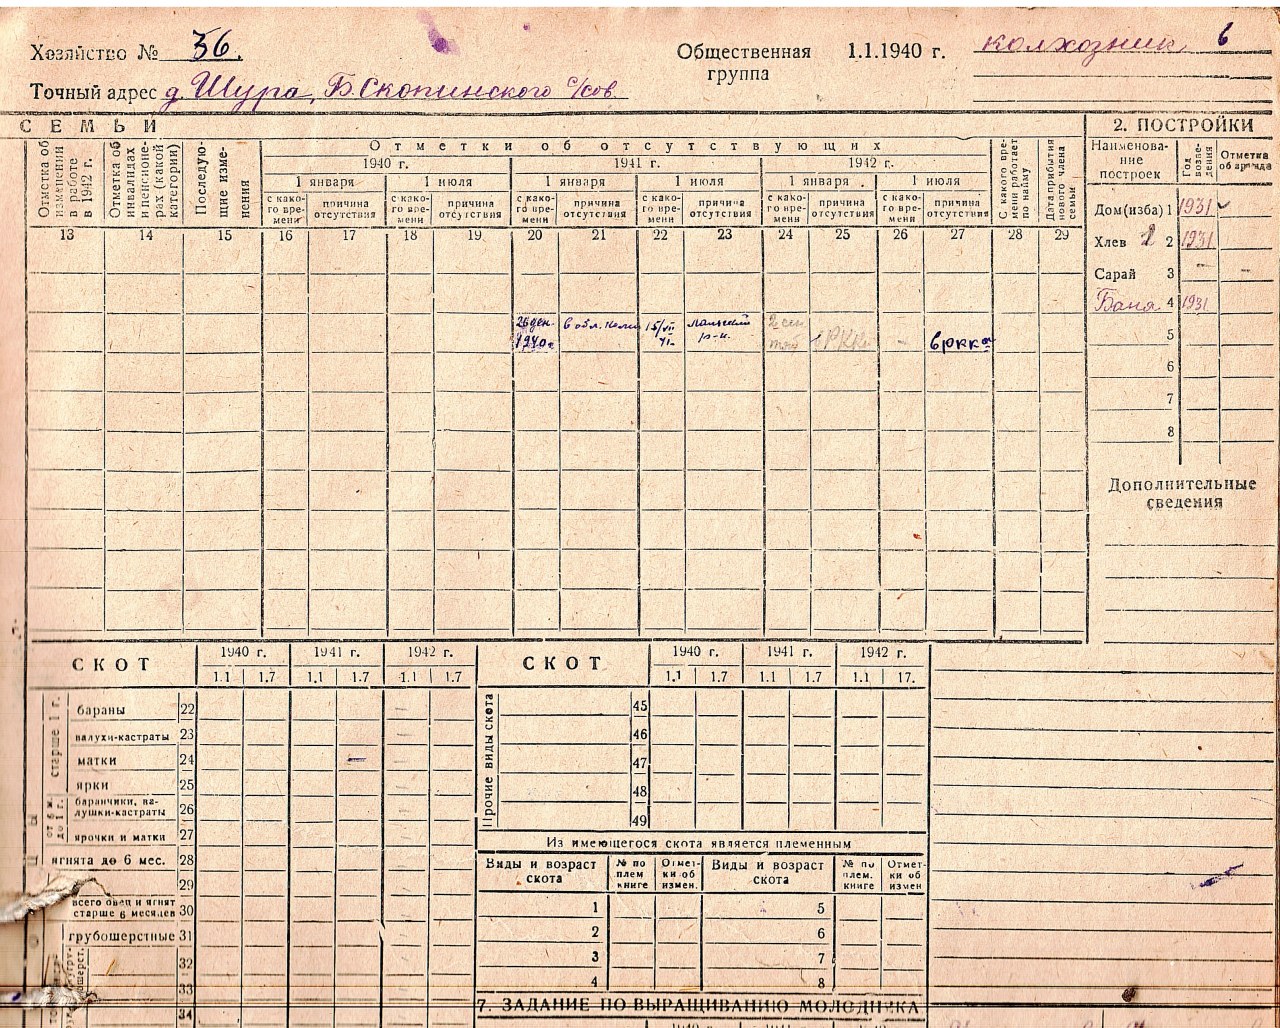 Хозяйство № 36.
Общественная группа 1.1.1940 г. колхозник 6
Точный адрес д. Шура, Б.Скопинского с/сов.
СЕМЬИ
2. ПОСТРОЙКИ
Отметка об изменении в работе в 1942 г.
Отметка об инвалидах и пенсионерах (какой категории)
Последующие изменения
Отметки об отсутствующих
1940 г. 1941 г. 1942 г.
1 января 1 июля 1 января 1 июля 1 января 1 июля
с како-го времени причина отсутствия с како-го времени причина отсутствия с како-го времени причина отсутствия с како-го времени причина отсутствия с како-го времени причина отсутствия с како-го времени причина отсутствия
С какого времени работает по найму
Дата прибытия нового члена семьи
Наименова-ние построек Год возве-дения Отметка об аренда
13 14 15 16 17 18 19 20 21 22 23 24 25 26 27 28 29
Дом(изба) 1 1931
Хлев 2 2 1931
Сарай 3 — —
Баня 4 1931
5
6
7
8
26 дек. 1940 г. в обл. 15/VII 41 р-н. РККА - в ркка
Дополнительные сведения
СКОТ 1940 г. 1941 г. 1942 г.
1.1 1.7 1.1 1.7 1.1 1.7
старше 1 г.
бараны 22
валухи-кастраты 23
матки 24 —
ярки 25
от 6 м. до 1 г.
баранчики, ва-лушки-кастраты 26
ярочки и матки 27
ягнята до 6 мес. 28
29
всего овец и ягнят старше 6 месяцев 30
грубошерстные 31
32
33
34
СКОТ 1940 г. 1941 г. 1942 г.
1.1 1.7 1.1 1.7 1.1 17.
Прочие виды скота
45
46
47
48
49
Из имеющегося скота является племенным
Виды и возраст скота № по плем книге Отмет-ки об измен. Виды и возраст скота № по плем. книге Отмет-ки об измен
1 5
2 6
3 7
4 8
7. ЗАДАНИЕ ПО ВЫРАЩИВАНИЮ МОЛОДНЯКА